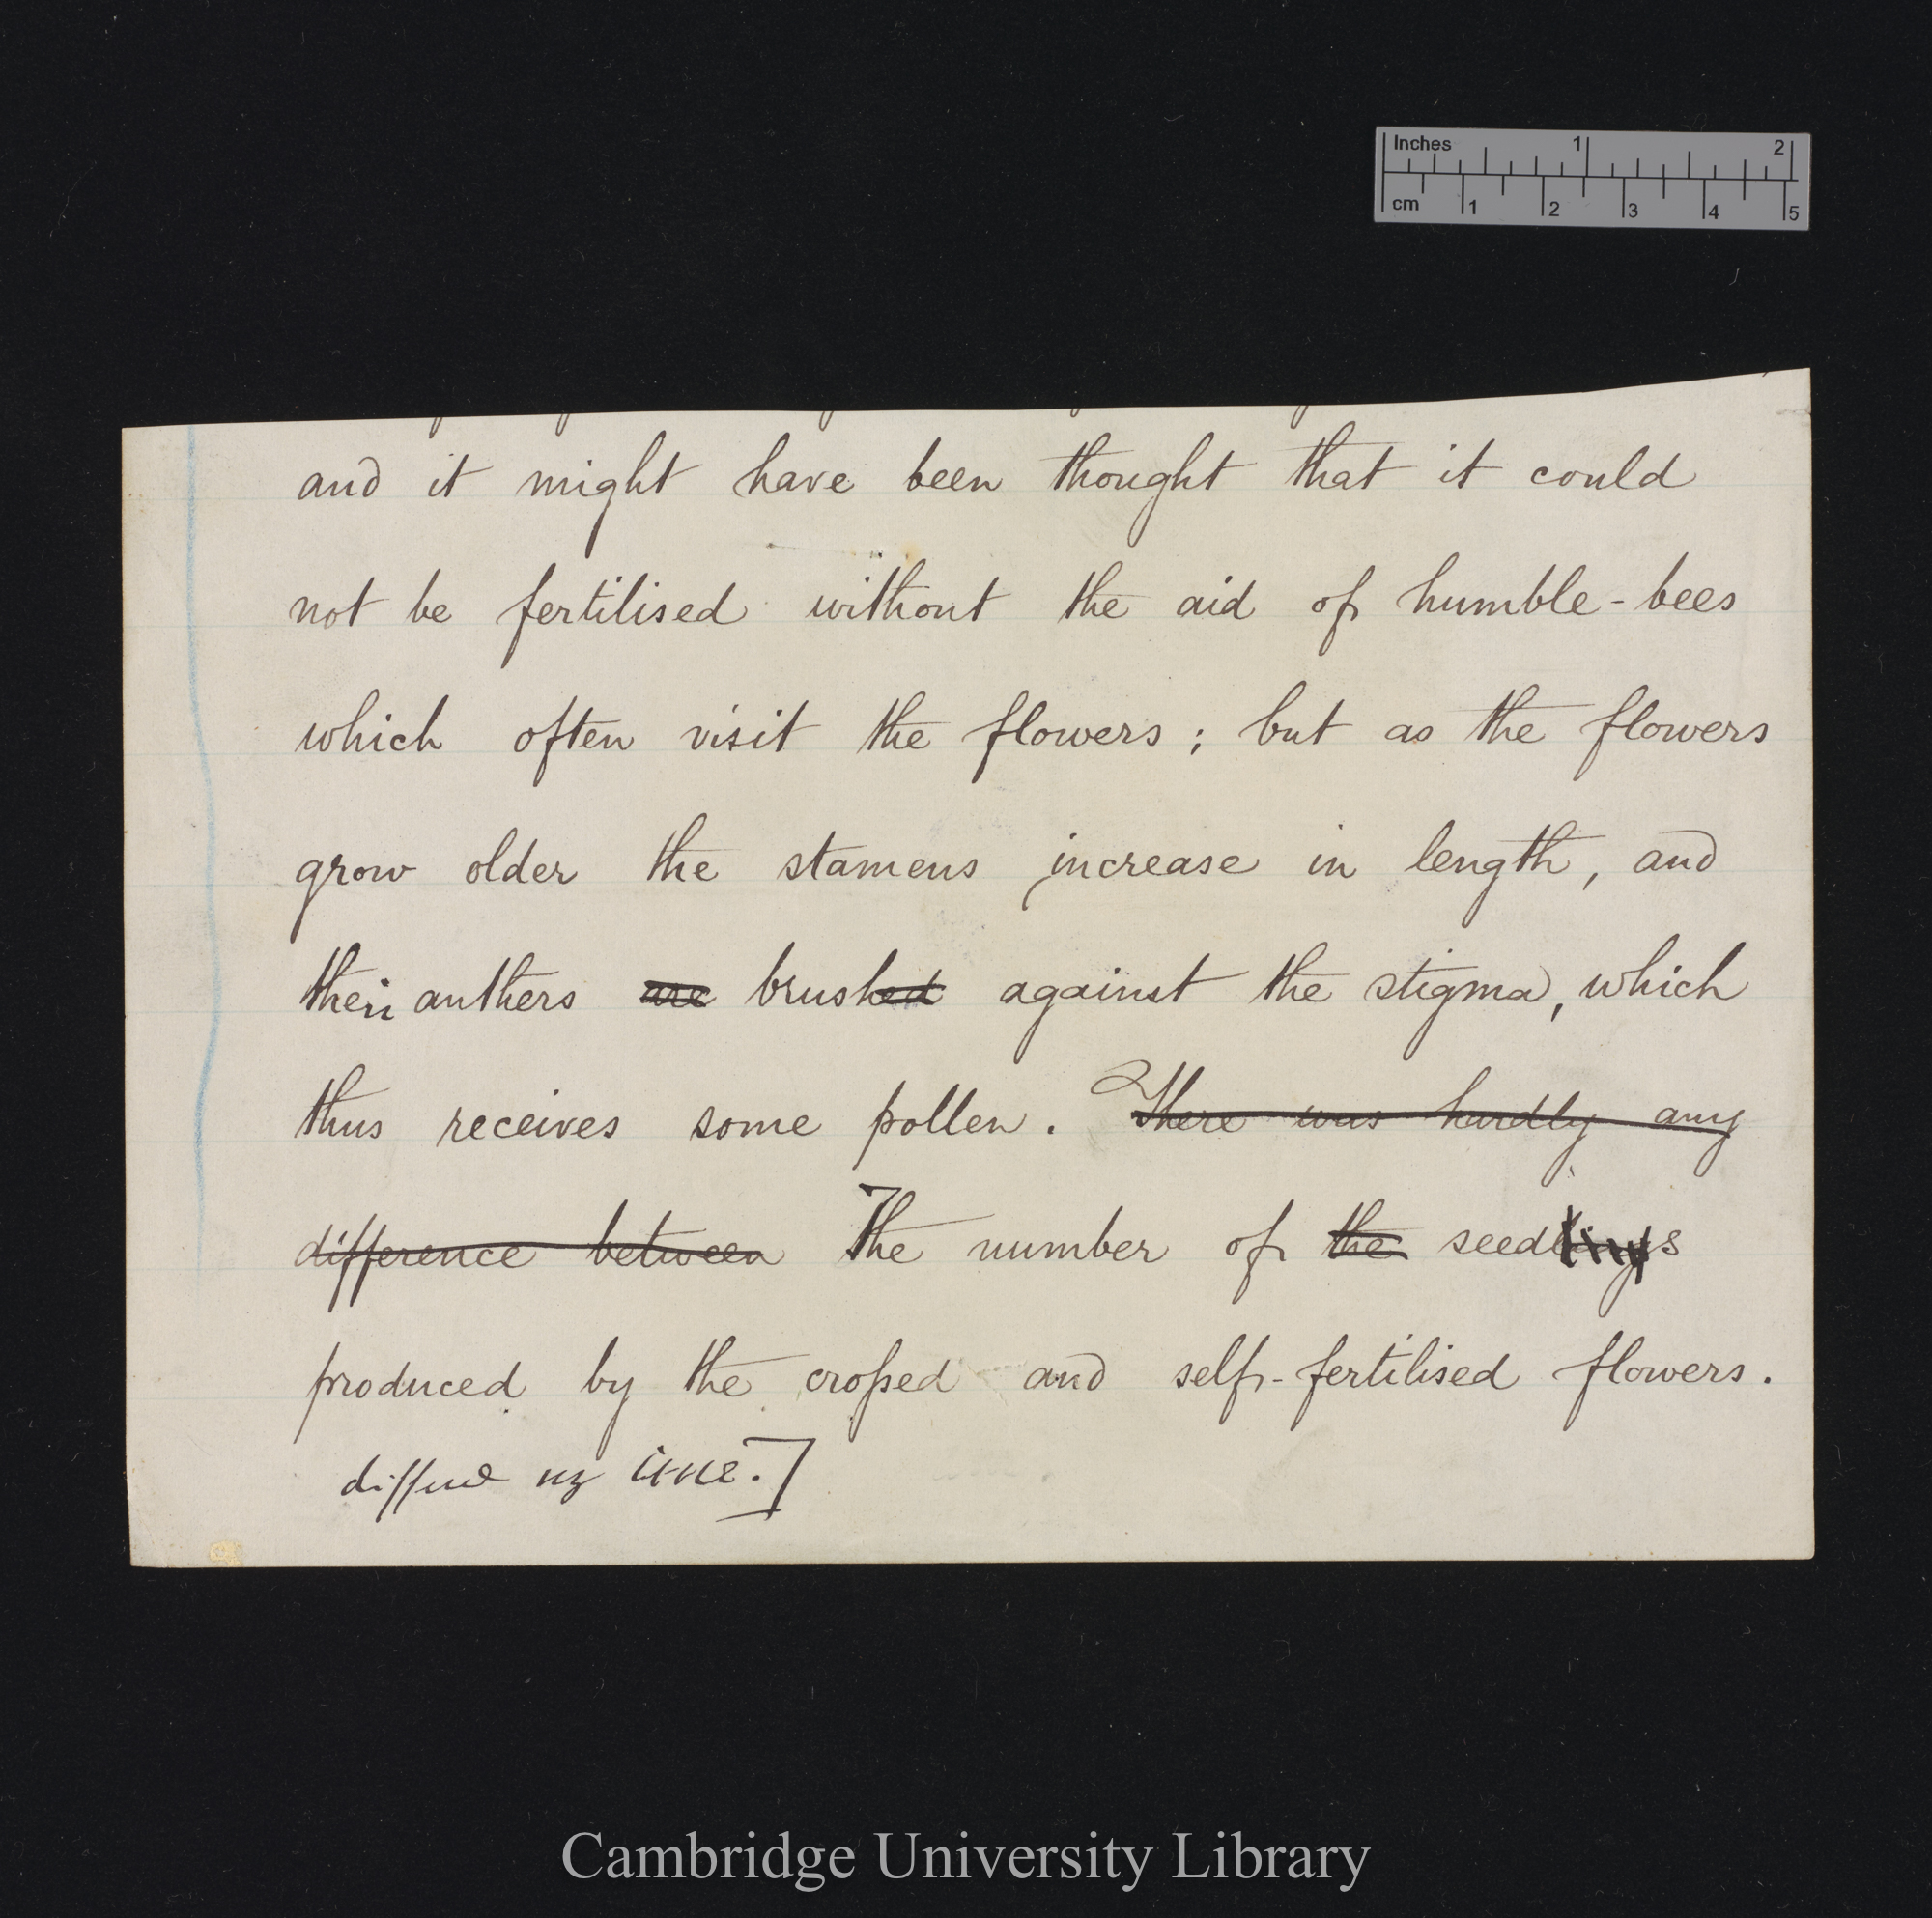 Inches 1 2
cm 1 2 3 4 5
and it might have been thought that it could
not be fertilised without the aid of humble-bees
which often visit the flowers; but as the flowers
grow older the stamens increase in length, and
their anthers are brushed against the stigma, which
thus receives some pollen. There was hardly any
difference between The number of the seedlings
produced by the crossed and self-fertilised flowers.
differed
Cambridge University Library